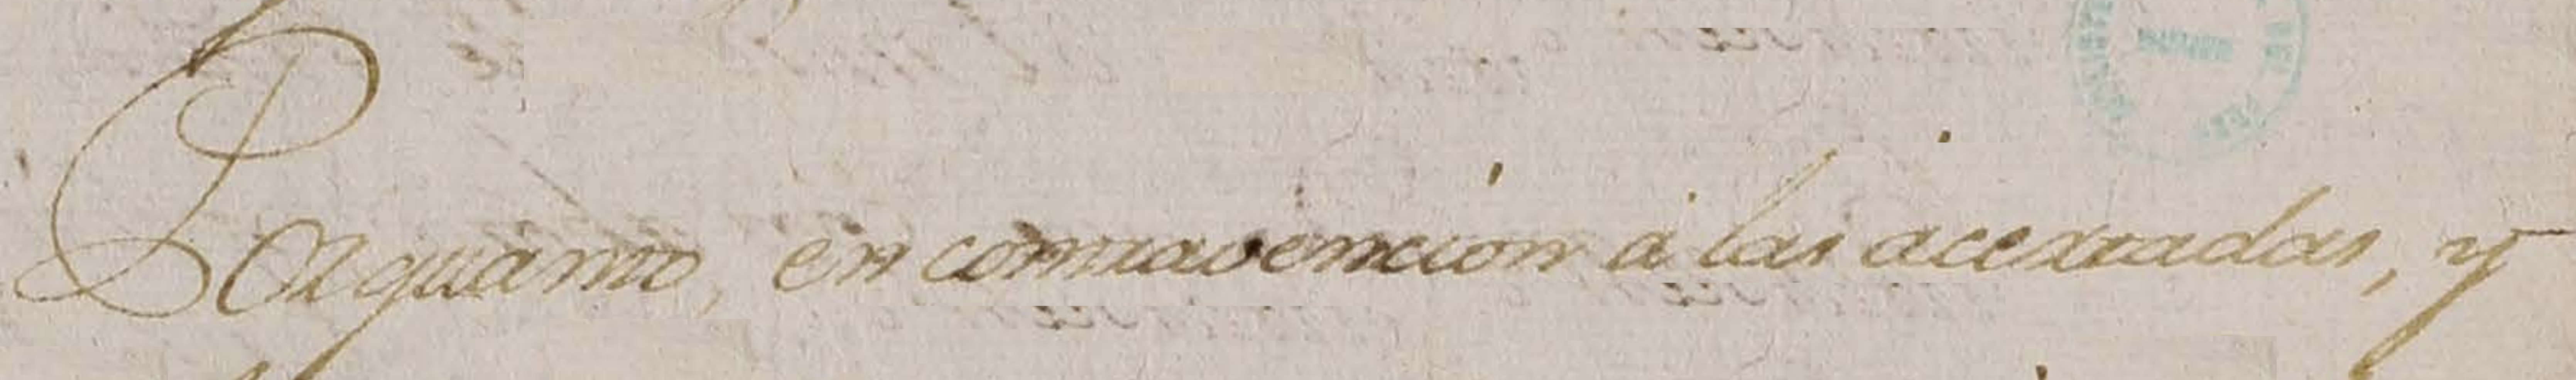 Porquanto, en contravencion à las acertadas, y